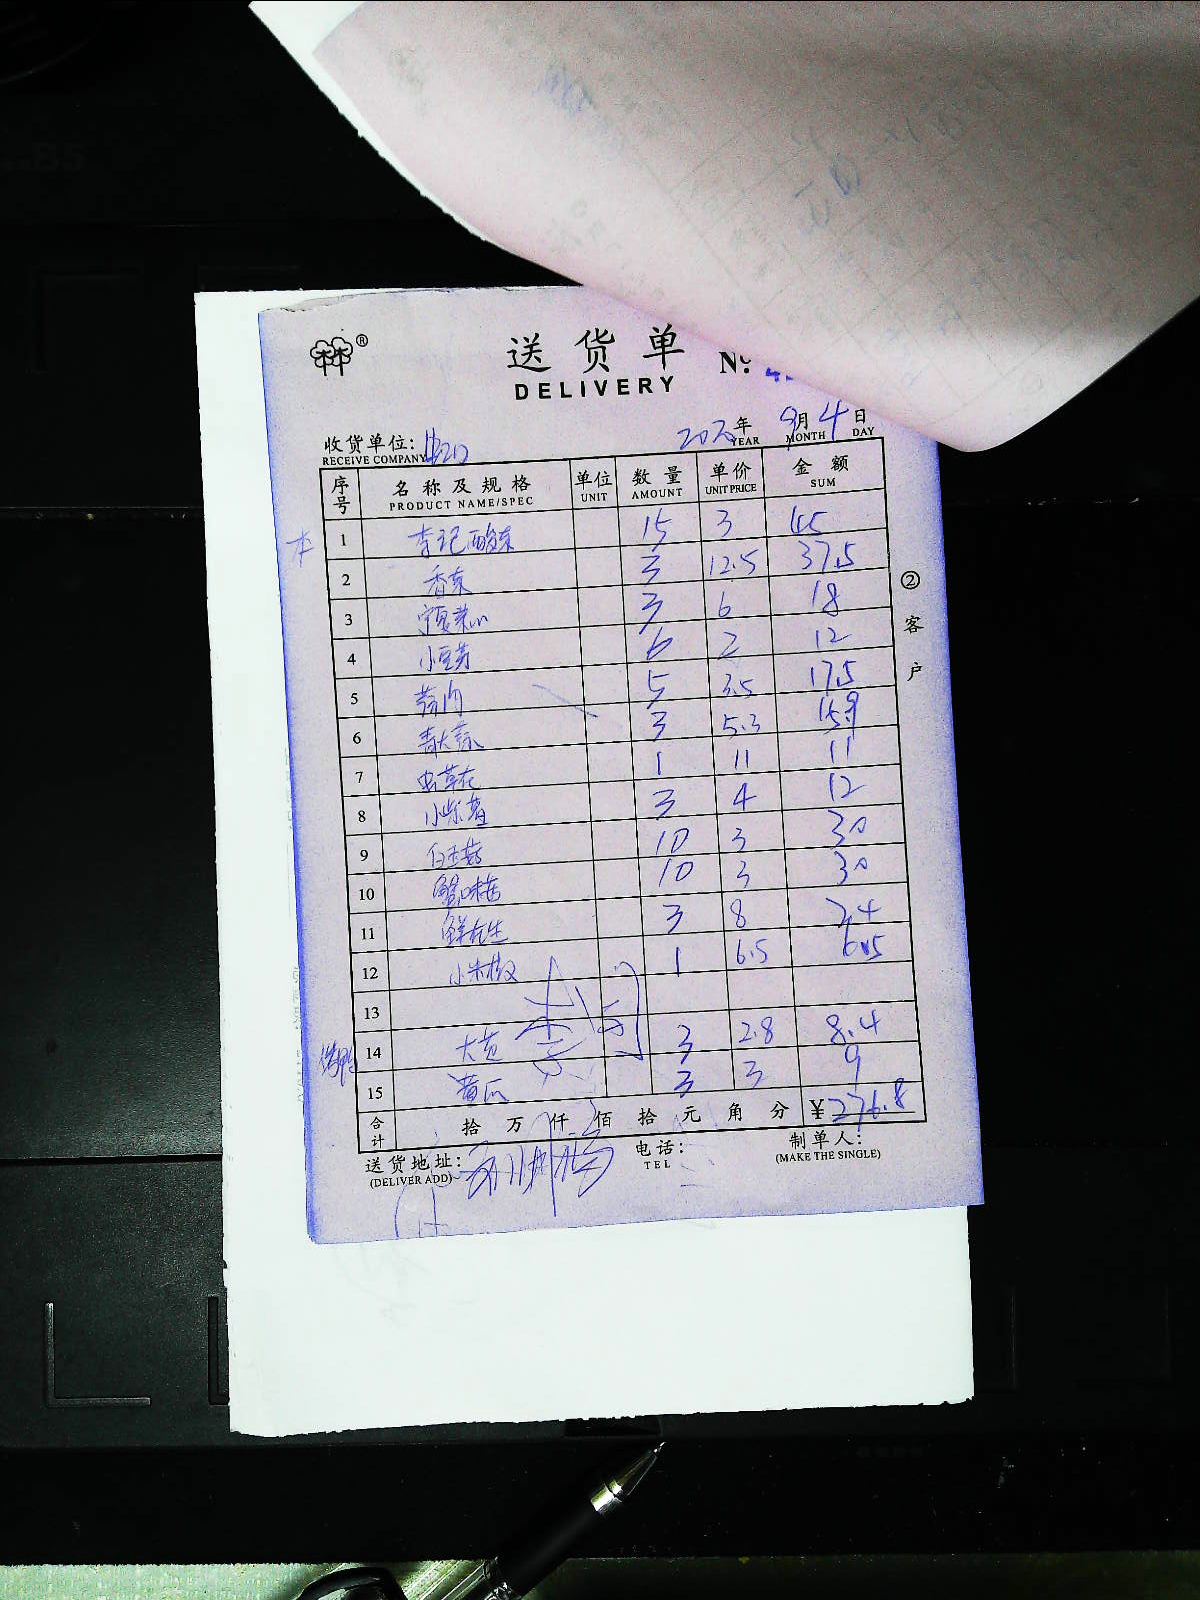 林®
送货单 №: 4
DELIVERY
收货单位: 2020年 9月 4日
RECEIVE COMPANY YEAR MONTH DAY
序号 名称及规格 单位 数量 单价 金额
PRODUCT NAME/SPEC UNIT AMOUNT UNIT PRICE SUM
本 1 李记酸菜 15 3 45
2 香菜 3 12.5 37.5
3 宁夏菜心 3 6 18
4 小豆芽 6 2 12
5 3.5 17.5 5
6 青大蒜 3 5.3 15.9
7 虫草花 1 11 11
8 小紫薯 3 4 12
9 白玉菇 10 3 30
10 蟹味菇 10 3 30
11 鲜花生 3 8 24
12 小米椒 1 6.5 6.5
13
14 大葱 3 2.8 8.4
15 黄瓜 3 3 9
合计 拾 万 仟 佰 拾 元 角 分 ¥276.8
送货地址: 电话: 制单人:
(DELIVER ADD) TEL (MAKE THE SINGLE)
② 客户